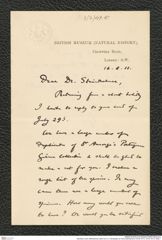 BRITISH MUSEUM (NATURAL HISTORY),
CROMWELL ROAD,
LONDON: S.W.
Dear Dr.
Returning from a short holiday
I hasten to reply to your card of
July 29th.
We have a large number of
duplicates of Dr
Guinea Collection & shall be glad to
make a set for you. I enclose a
rough list of the species. In many
cases there are a large number of
specimens. How many would you care
to have? Or would you be satisfied